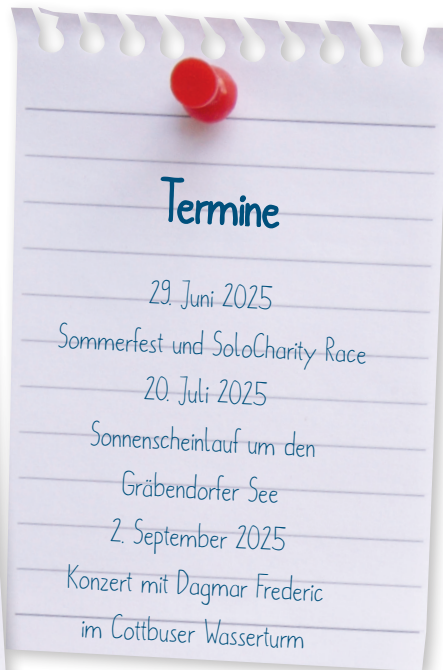 Termine
29. Juni 2025
Sommerfest und SoloCharity Race
20. Juli 2025
Sonnenscheinlauf um den
Gräbendorfer See
2. September 2025
Konzert mit Dagmar Frederic
im Cottbuser Wasserturm